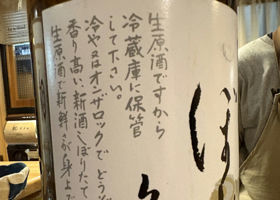 生原酒ですから
冷蔵庫に保管
して下さい。
冷や又はオンザロックで どうぞ
香り高い、新酒しぼりたて
生原酒で新鮮さが身上で